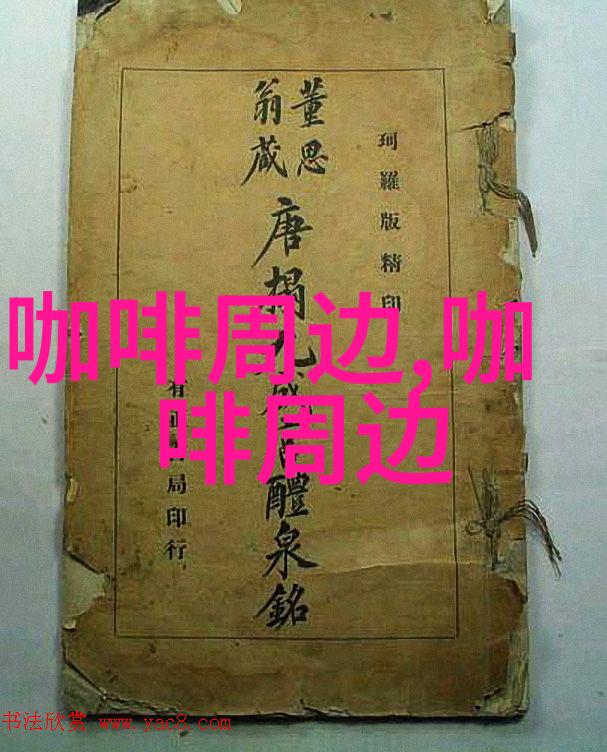 珂羅版精印
董思
翁藏
唐搨九成醴泉銘
有局印行
咖啡周边,咖
啡周边
书法欣赏 www.yac8.com